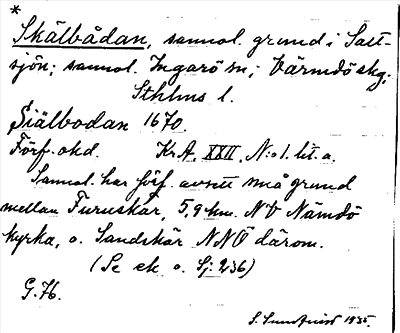 *
Skälbådan, sannol. grund i Salt-
sjön; sannol. Ingarö sn; Värmdö skg;
Sthlms l.
Siälbodan 1670.
Förf. okd. KrA, XXII, N:o 1. lit. a.
Sannol. har förf. avsett små grund
mellan Furuskär, 5,9 km. NV Nämdö
kyrka, o. Sandskär NNÖ därom.
(Se ek. o. Sj: 236)
G. 76.
S. Sundqvist 1935.